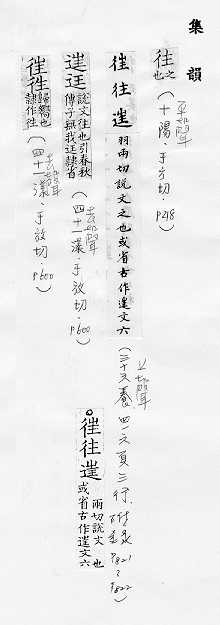 集韻
往 之也 (十陽·于方切·P218) 平聲
徃 往 𨓹 羽兩切說文之也或省古作𨓹文六 (三十六養 四一六頁三行. 附錄 P821~P822) 上聲
𨓹 迋 說文往也引春秋傳子無我迋隸省 (四十一漾·于放切·P600) 去聲
徃 歸嚮也隸作往 (四十一漾·于放切·P600) 去聲
徃 往 𨓹 雨切說文 也或省古作𨓹文六